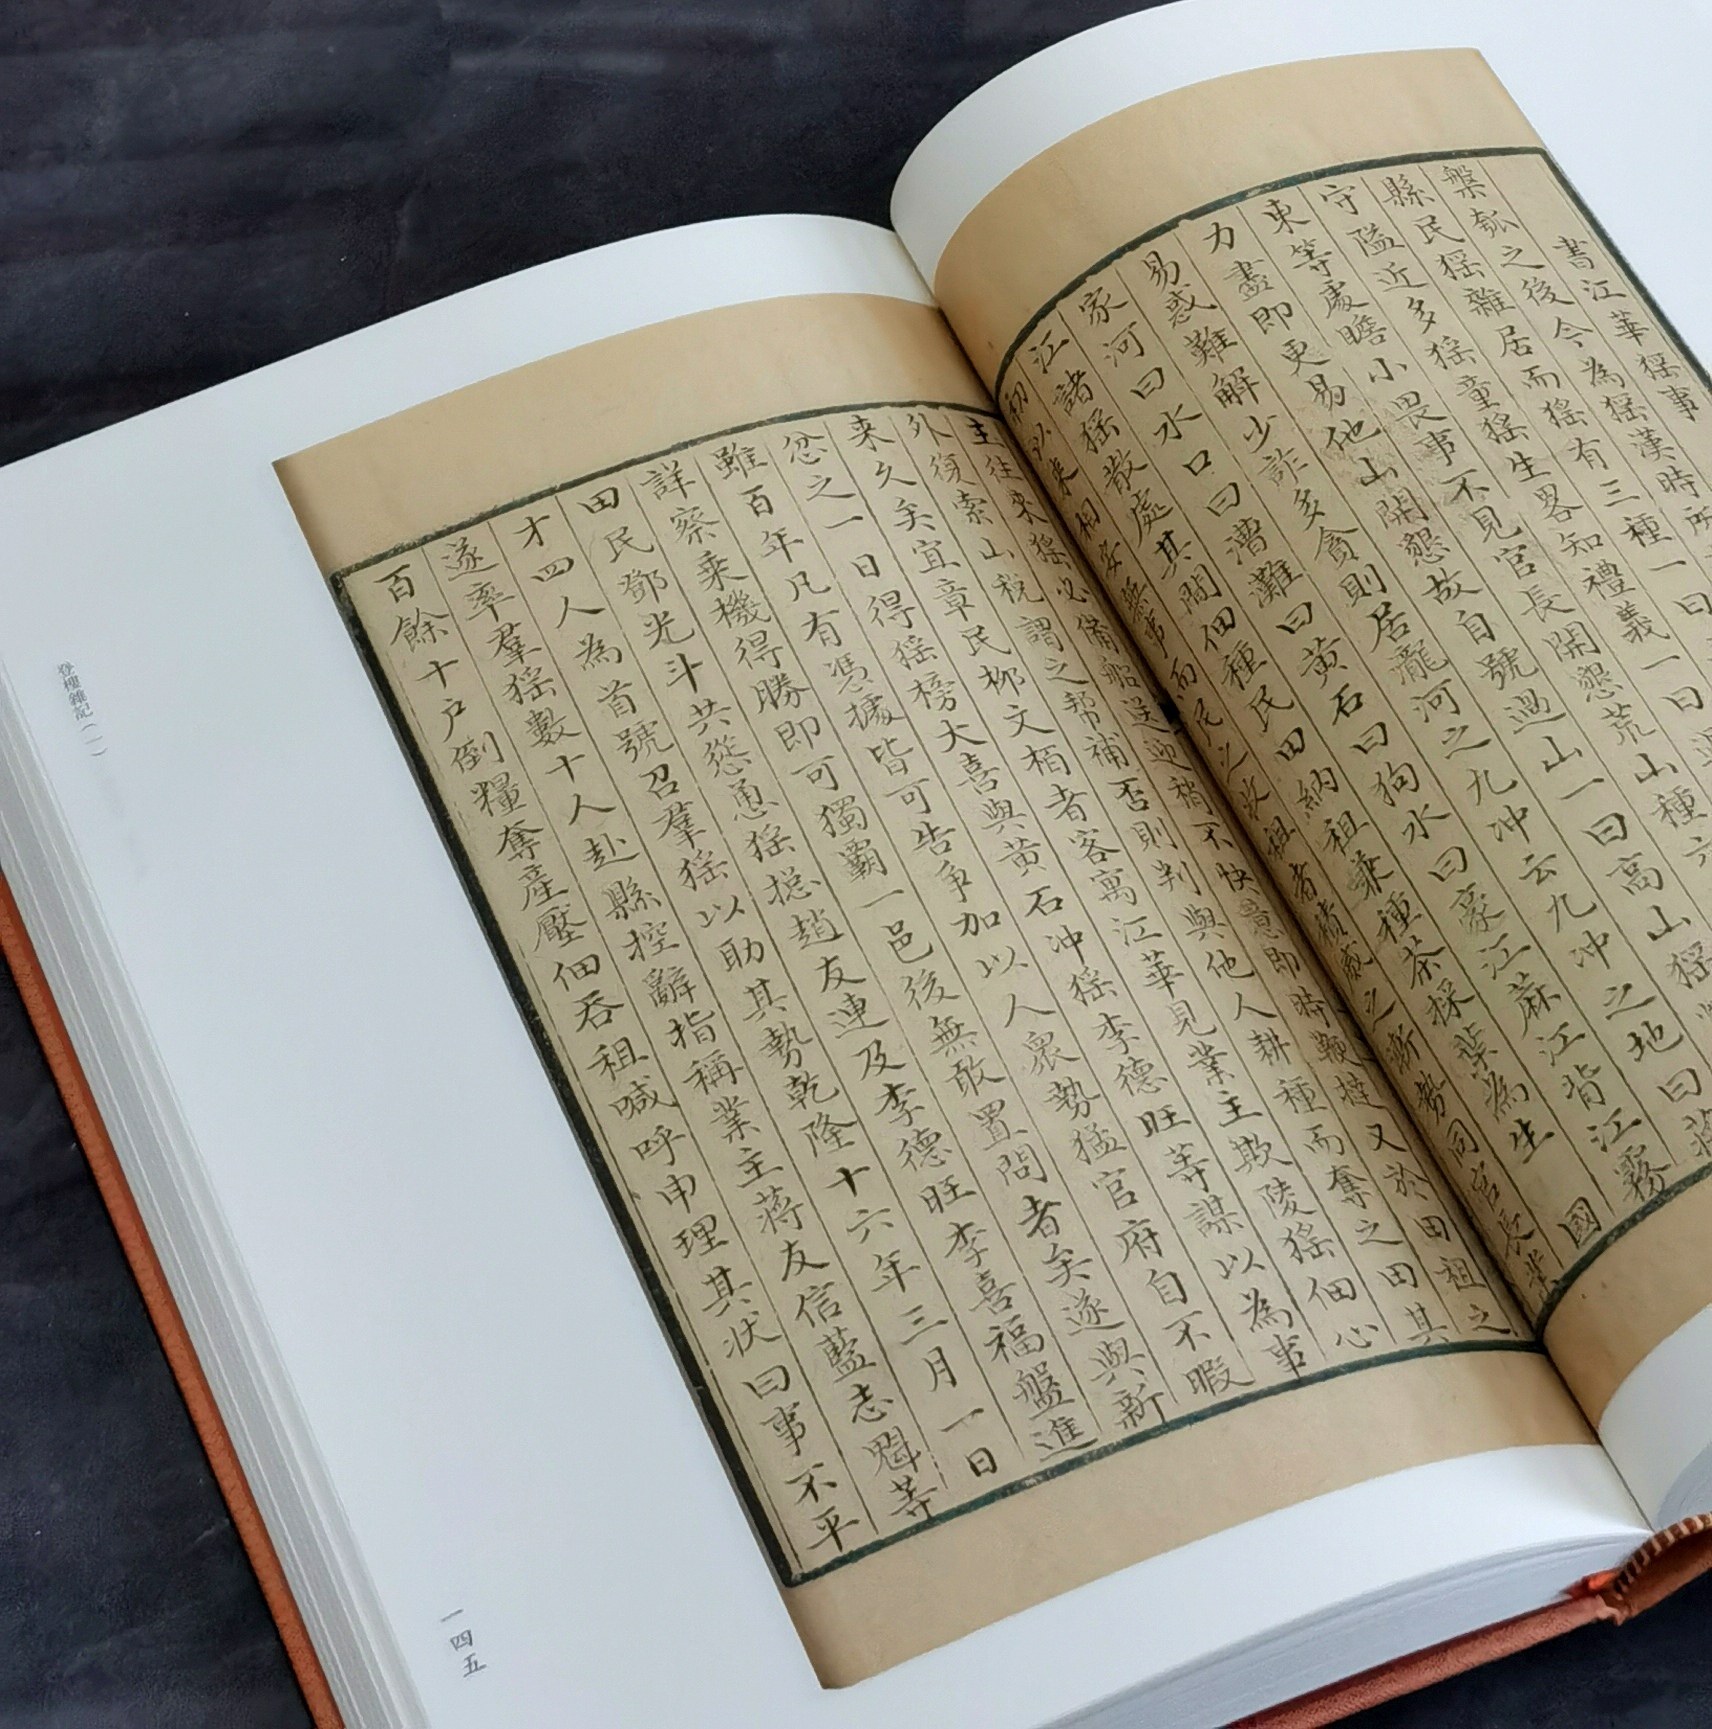 書江華猺事
槃瓠之後今為猺漢時所
縣民猺雜居而猺有三種一曰
守隘近多猺童猺生畧知禮義一曰過
東等處瞻小畏事不見官長開懇荒山種六
力盡即更易他山開懇故自號過山一曰高山猺
易惑難解少詐多貪則居瀧河之九冲云九冲之地曰蒋
家河曰水口曰漕灘曰黄石曰狗水曰豪江蔴江背江霧
江諸猺散處其間佃種民田納租兼種茶採柴為生國
初以来相安無事而民之收租者積威之漸勢同官長業
主往来猺必備船送迎稍不快意即時鞭撻又於田租之
外復索山税謂之帮補否則判與他人耕種而奪之田其
来久矣宜章民柳文栢者客寓江華見業主欺陵猺佃心
忿之一日得猺榜大喜與黄石冲猺李德旺等謀以為事
雖百年凡有憑據皆可告争加以人衆勢猛官府自不暇
詳察乗機得勝即可獨霸一邑後無敢置問者矣遂與新
田民鄧光斗共慫恿猺揔趙友連及李德旺李喜福盤進
才四人為首號召羣猺以助其勢乾隆十六年三月一日
遂率羣猺數十人赴縣控辭指稱業主蔣友信藍志魁等
百餘十户倒糧奪産壓佃吞租喊呼申理其状曰事不平
登樓雜記（一）
一四五